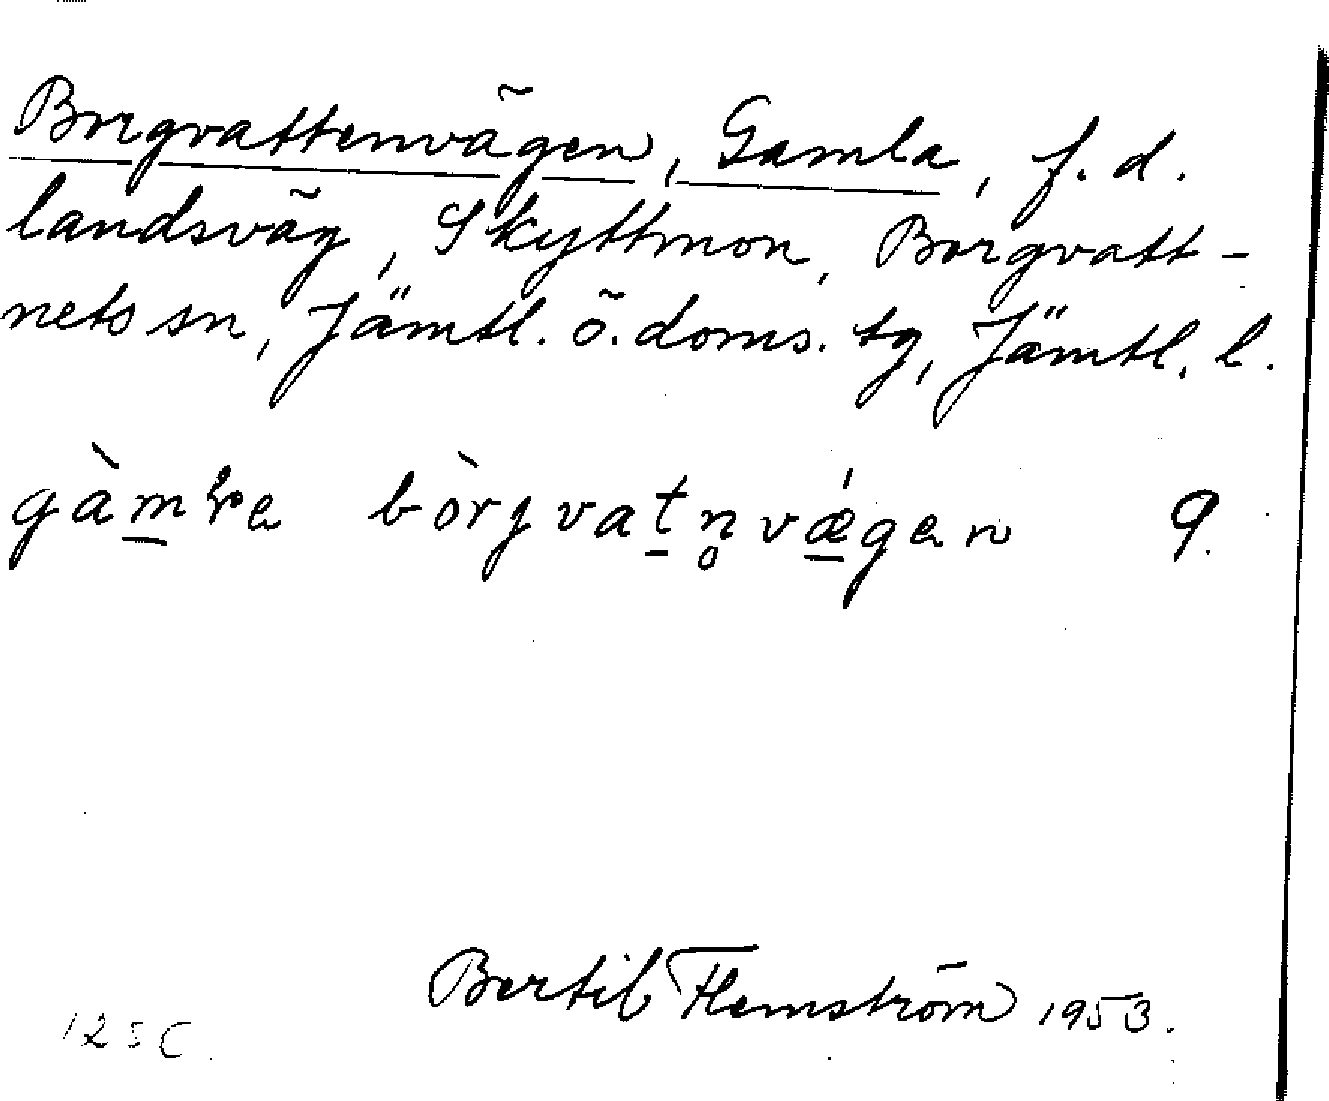 Borgvattenvägen, Gamla, f. d.
landsväg, Skyttmon, Borgvatt-
nets sn, Jämtl. ö. doms. tg, Jämtl. l.
bòrgvat̲n̥vǽ̲gen 9.
Bertil Flemström 1953.